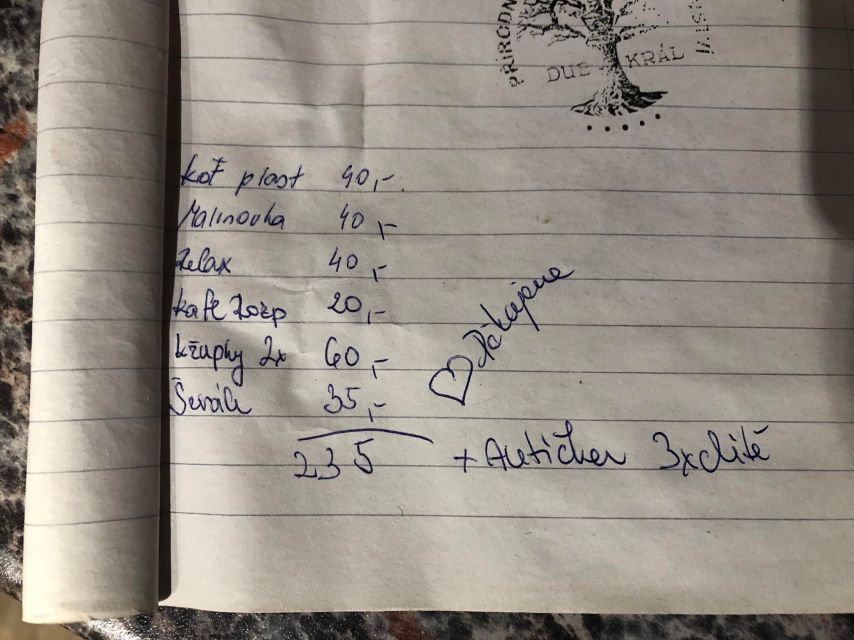 PŘÍRODN
DUB KRÁL
kof plast 40,-
Malinovka 40,-
Relax 40,-
kafe 20,-
křupky 2x 60,-
35,-
Děkujeme
235 + Autíčka 3x dítě